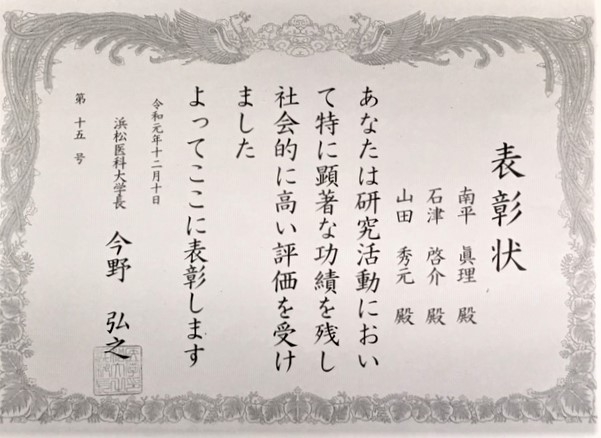 表彰状
南平 眞理 殿
石津 啓介 殿
山田 秀元 殿
あなたは研究活動におい
て特に顕著な功績を残し
社会的に高い評価を受け
ました
よってここに表彰します
令和元年十二月十日
浜松医科大学長 今野 弘之
第十五号